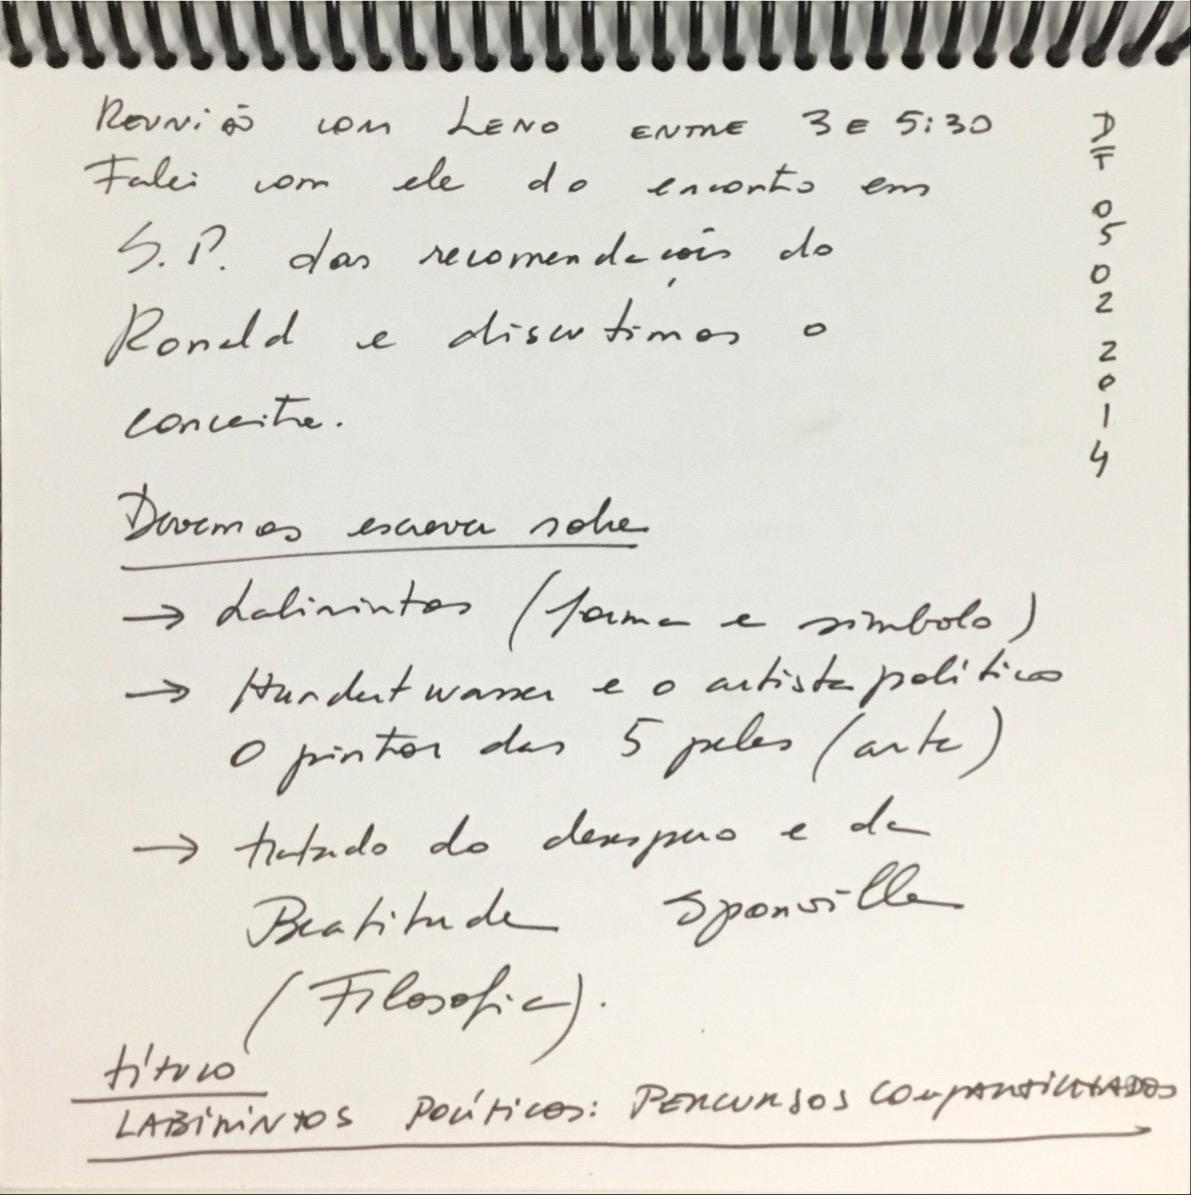 Reunião com Leno entre 3 e 5:30
Falei com ele do encontro em
S.P. das recomendações do
Ronald e discutimos o
conceito.
Devemos escrever sobre
→ Labirintos (forma e símbolo)
→ Hundertwasser e o artista político
O pintor das 5 peles (arte)
→ tratado do desespero e da
Beatitude Sponville
(Filosofia).
título
LABIRINTOS POLÍTICOS: PERCURSOS COMPARTILHADOS
DF
05
02
2014